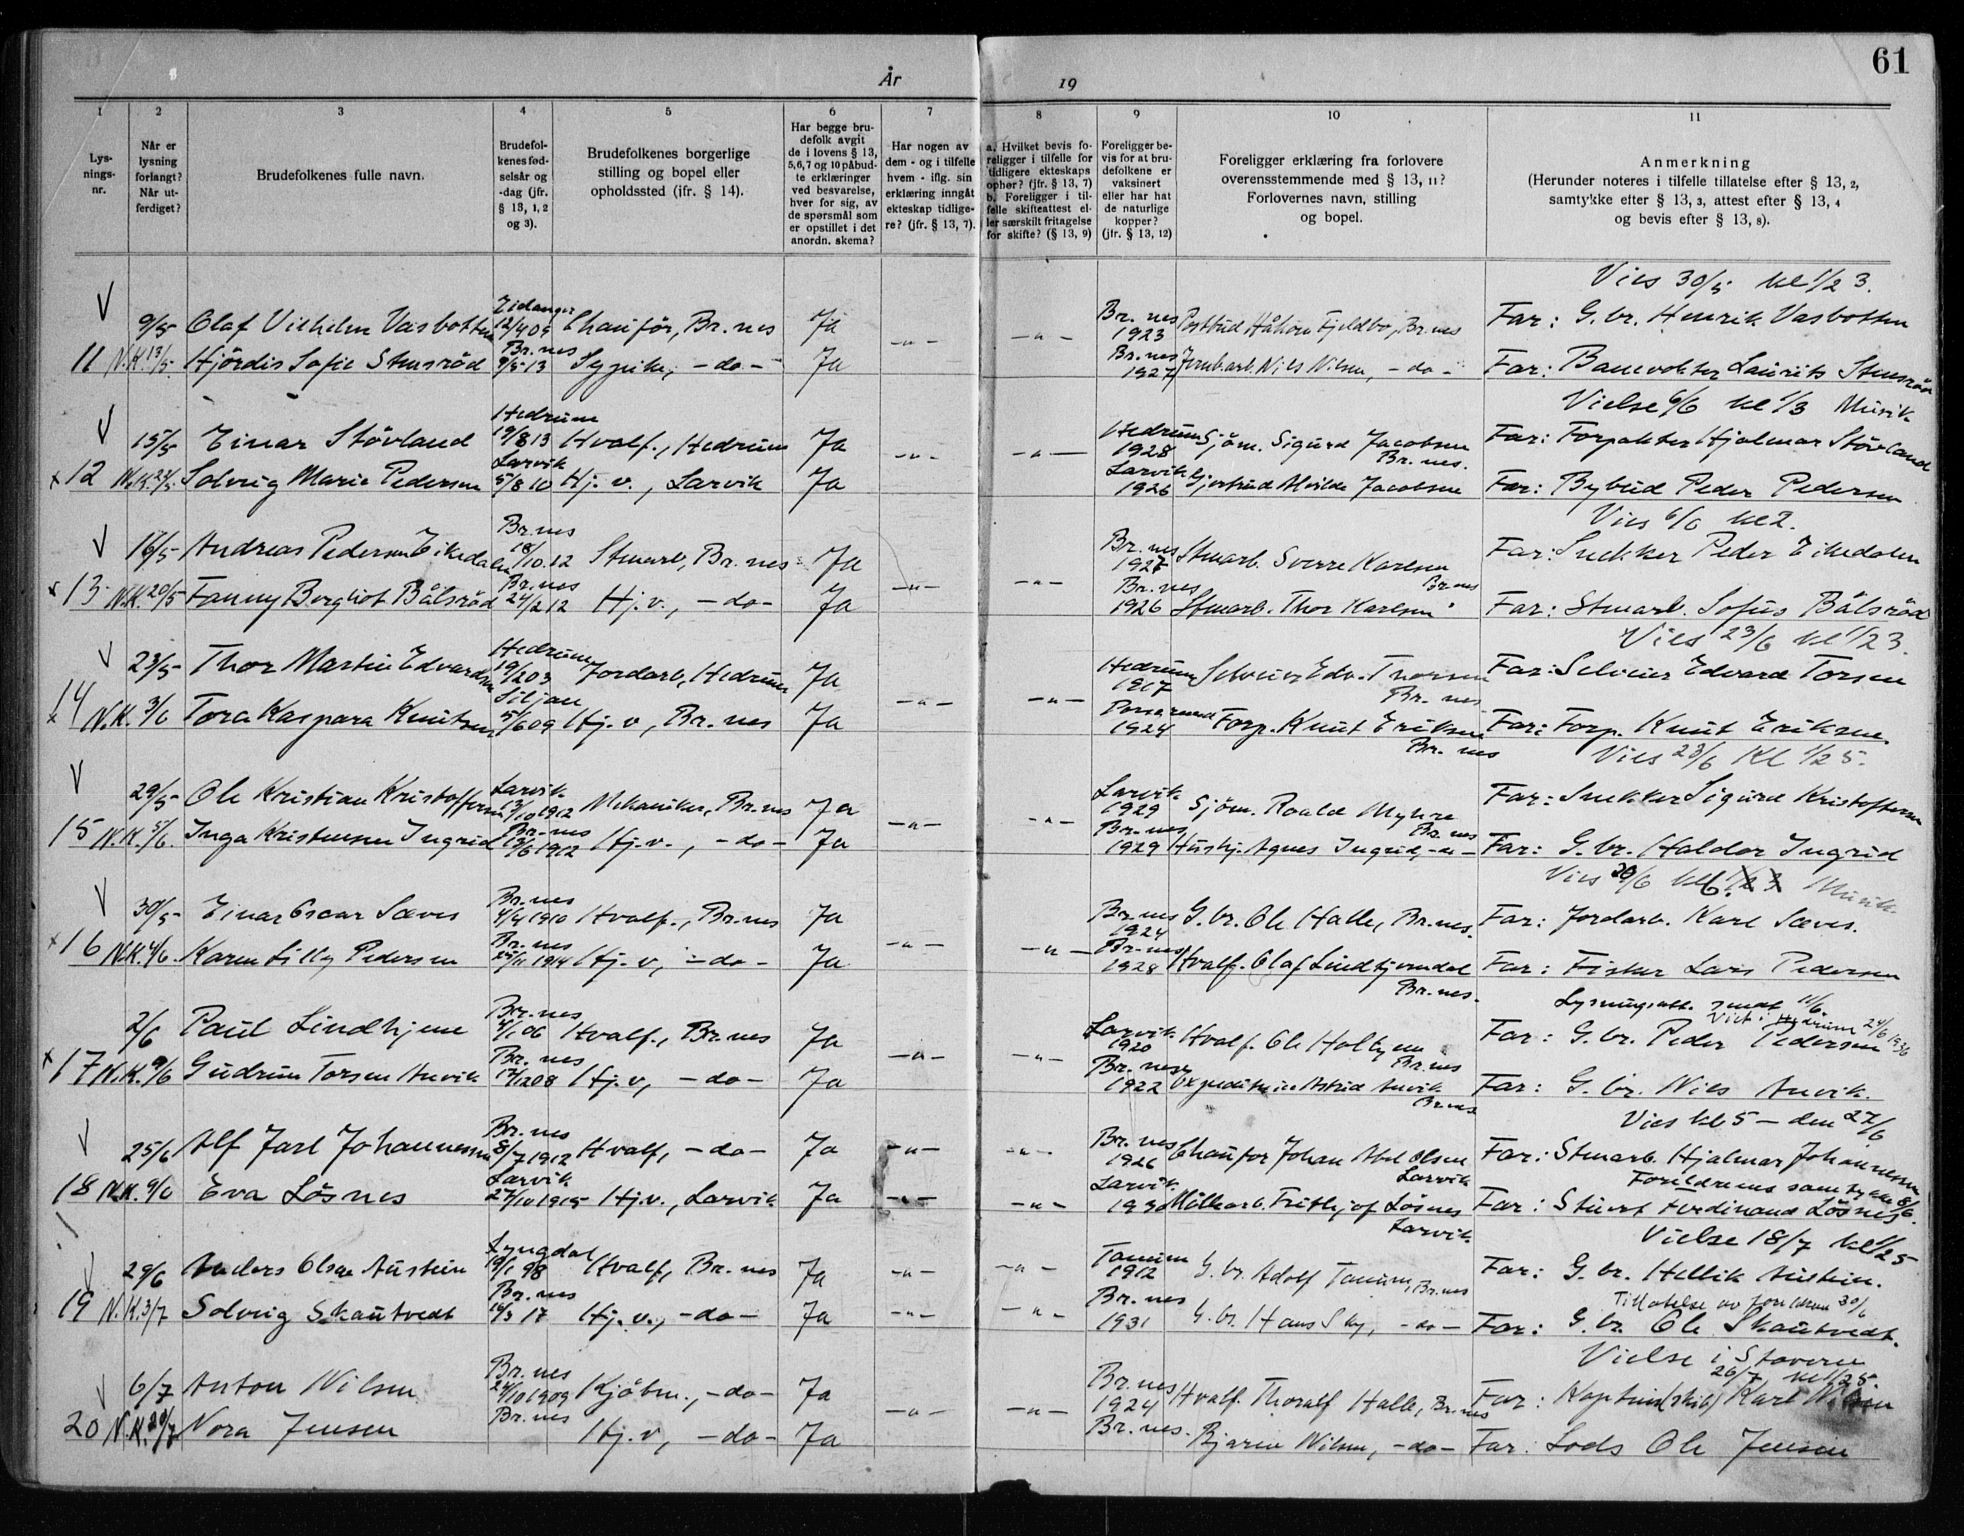 61
År
19
1
2
3
4
5
6
7
8
9
10
11
Lys-
nings-
nr.
Når er
lysning
forlangt?
Når ut-
ferdiget?
Brudefolkenes fulle navn.
Brudefol-
kenes fød-
selsår og
-dag (jfr.
§ 13, 1, 2
og 3).
Brudefolkenes borgerlige
stilling og bopel eller
opholdssted (jfr. § 14).
Har begge bru-
defolk avgit
de i lovens § 13,
5, 6, 7 og 10 påbud-
te erklæringer
ved besvarelse,
hver for sig, av
de spørsmål som
er opstillet i det
anordn. skema?
Har nogen av
dem - og i tilfelle
hvem - iflg. sin
erklæring inngått
ekteskap tidlige-
re? (jfr. § 13, 7).
a. Hvilket bevis fo-
religger i tilfelle for
tidligere ekteskaps
ophør? (jfr. § 13, 7)
b. Foreligger i til-
felle skifteattest el-
ler særskilt fritagelse
for skifte? (§ 13, 9)
Foreligger be-
vis for at bru-
defolkene er
vaksinert
eller har hat
de naturlige
kopper?
(jfr. § 13, 12)
Foreligger erklæring fra forlovere
overensstemmende med § 13, 11?
Forlovernes navn, stilling
og bopel.
Anmerkning
(Herunder noteres i tilfelle tillatelse efter § 13, 2,
samtykke efter § 13, 3, attest efter § 13, 4
og bevis efter § 13, 8).
Vies 30/5 kl 1/2 3.
9/5 Olaf Vilhelm Vasbotten Eidanger 12/4 05 Chauför, Br.nes Ja -"- -"- Br.nes 1923 Postbud Håkon Fjeldbo, Br.nes Far: G.br. Henrik Vasbotten
11 N.K. 13/5 Hjördis Sofie Stensröd Br.nes 9/5 13 Sypike, -do- Ja Br.nes 1927 Jernb.arb. Nils Nilsen, -do- Far: Banevokter Laurits Stensröd
Vielse 6/6 kl 1/3 Musik
15/5 Einar Stövland Hedrum 19/8 13 Hvalf., Hedrum Ja -"- -"- Hedrum 1928 Sjöm. Sigurd Jacobsen Br.nes. Far: Forpakter Hjalmar Stövland
x 12 N.K. 22/5 Solveig Marie Pedersen Larvik 5/8 10 Hj.v., Larvik Ja Larvik 1926 Gjertrud Alvilde Jacobsen Far: Bybud Peder Pedersen
Vies 6/6 kl 2.
16/5 Andreas Pedersen Eikedalen Br.nes 18/10 12 Stenarb, Br.nes Ja -"- -"- Br.nes 1927 Stenarb. Sverre Karlsen Br.nes Far: Snekker Peder Eikedalen
x 13 N.K. 20/5 Fanny Bergliot Bålsröd Br.nes 24/2 12 Hj.v., -do- Ja Br.nes 1926 Stenarb. Thor Karlsen " Far: Stenarb. Sofus Bålsröd
Vies 23/6 kl 1/2 3.
23/5 Thor Martin Edvardsen Hedrum 19/2 03 Jordarb, Hedrum Ja -"- -"- Hedrum 1917 Selveier Edv. Thorsen Br.nes Far: Selveier Edvard Torsen
x 14 N.K. 3/6 Tora Kaspara Knutsen Siljan 5/6 09 Hj.v, Br.nes Ja 1924 Forp. Knut Eriksen Br.nes Far: Forp. Knut Eriksen
Vies 23/6 Kl 1/2 5.
29/5 Ole Kristian Kristoffersen Larvik 13/10 1912 Mekaniker, Br.nes Ja -"- -"- Larvik 1929 Sjöm. Roald Myhre Br.nes Far: Snekker Sigurd Kristoffersen
15 N.K. 5/6. Inga Kristensen Ingrid Br.nes 13/6 1912 Hj.v., -do- Ja Br.nes 1929 Hushj. Agnes Ingrid, -do- Far: G.br. Haldor Ingrid
Vies 20/6 kl 6. 1/2 3 Musik.
30/5 Einar Oscar Sæves Br.nes 4/4 1910 Hvalf., Br.nes Ja -"- -"- Br.nes 1924 G.br. Ole Halle, Br.nes. Far: Jordarb. Karl Sæves.
x 16 N.K. 4/6. Karen Lilly Pedersen Br.nes 25/11 1914 Hj.v, -do- Ja Br.nes 1928 Hvalf. Olaf Lindhjemdal Br.nes. Far: Fisker Lars Pedersen
Lysningsatt. sendt 11/6.
Viet i Hedrum 24/6 1936
2/6 Paul Lindhjem Br.nes 4/1 06 Hvalf., Br.nes Ja -"- -"- Larvik 1920 Hvalf. Ole Holtjem Br.nes Far: G.br. Peder Pedersen
x 17 N.K. 9/6 Gudrun Torsen Anvik Br.nes 17/12 08 Hj.v, -do- Ja Br.nes 1922 Astrid Anvik Br.nes Far: G.br. Nils Anvik.
Vies kl 5 - den 27/6
25/6 Alf Jarl Johannessen Br.nes 8/7 1912 Hvalf, -do- Ja -"- -"- Br.nes 1926 Chauför Johan Abel Olsen Larvik Far: Stenarb. Hjalmar Johannessen
Foreldrenes samtykke 8/6.
18 N.K. 9/6 Eva Lösnes Larvik 27/10 1915 Hj.v., Larvik Ja -"- -"- Larvik 1930 Möllearb. Frithjof Lösnes Larvik Far: Stuert Ferdinand Lösnes
Vielse 18/7 kl 1/2 5
29/6 Anders Olsen Austein Lyngdal 19/1 98 Hvalf, Br.nes Ja -"- -"- Tanum 1912 G.br. Adolf Tanum, Br.nes Far: G.br. Hellik Austein.
Tillatelse av foreldrene 30/6
19 N.K. 3/7 Solveig Skautvedt Br.nes 16/3 17 Hj.v., -do- Ja -"- -"- Br.nes 1931 G.br. Hans Sky, -do- Far: G.br. Ole Skautvedt.
Vielse i Stavern
26/7 kl 1/2 5.
6/7 Anton Nilsen Br.nes 24/10 1909 Kjöbm., -do- Ja -"- -"- Br.nes 1924 Hvalf. Thoralf Halle, Br.nes Far: Kaptein (skib) Karl Nilsen
20 N.K. 20/7 Nora Jensen Br.nes Hj.v, -do- Ja Br.nes. Bjarne Nilsen, -do- Far: Lods Ole Jensen